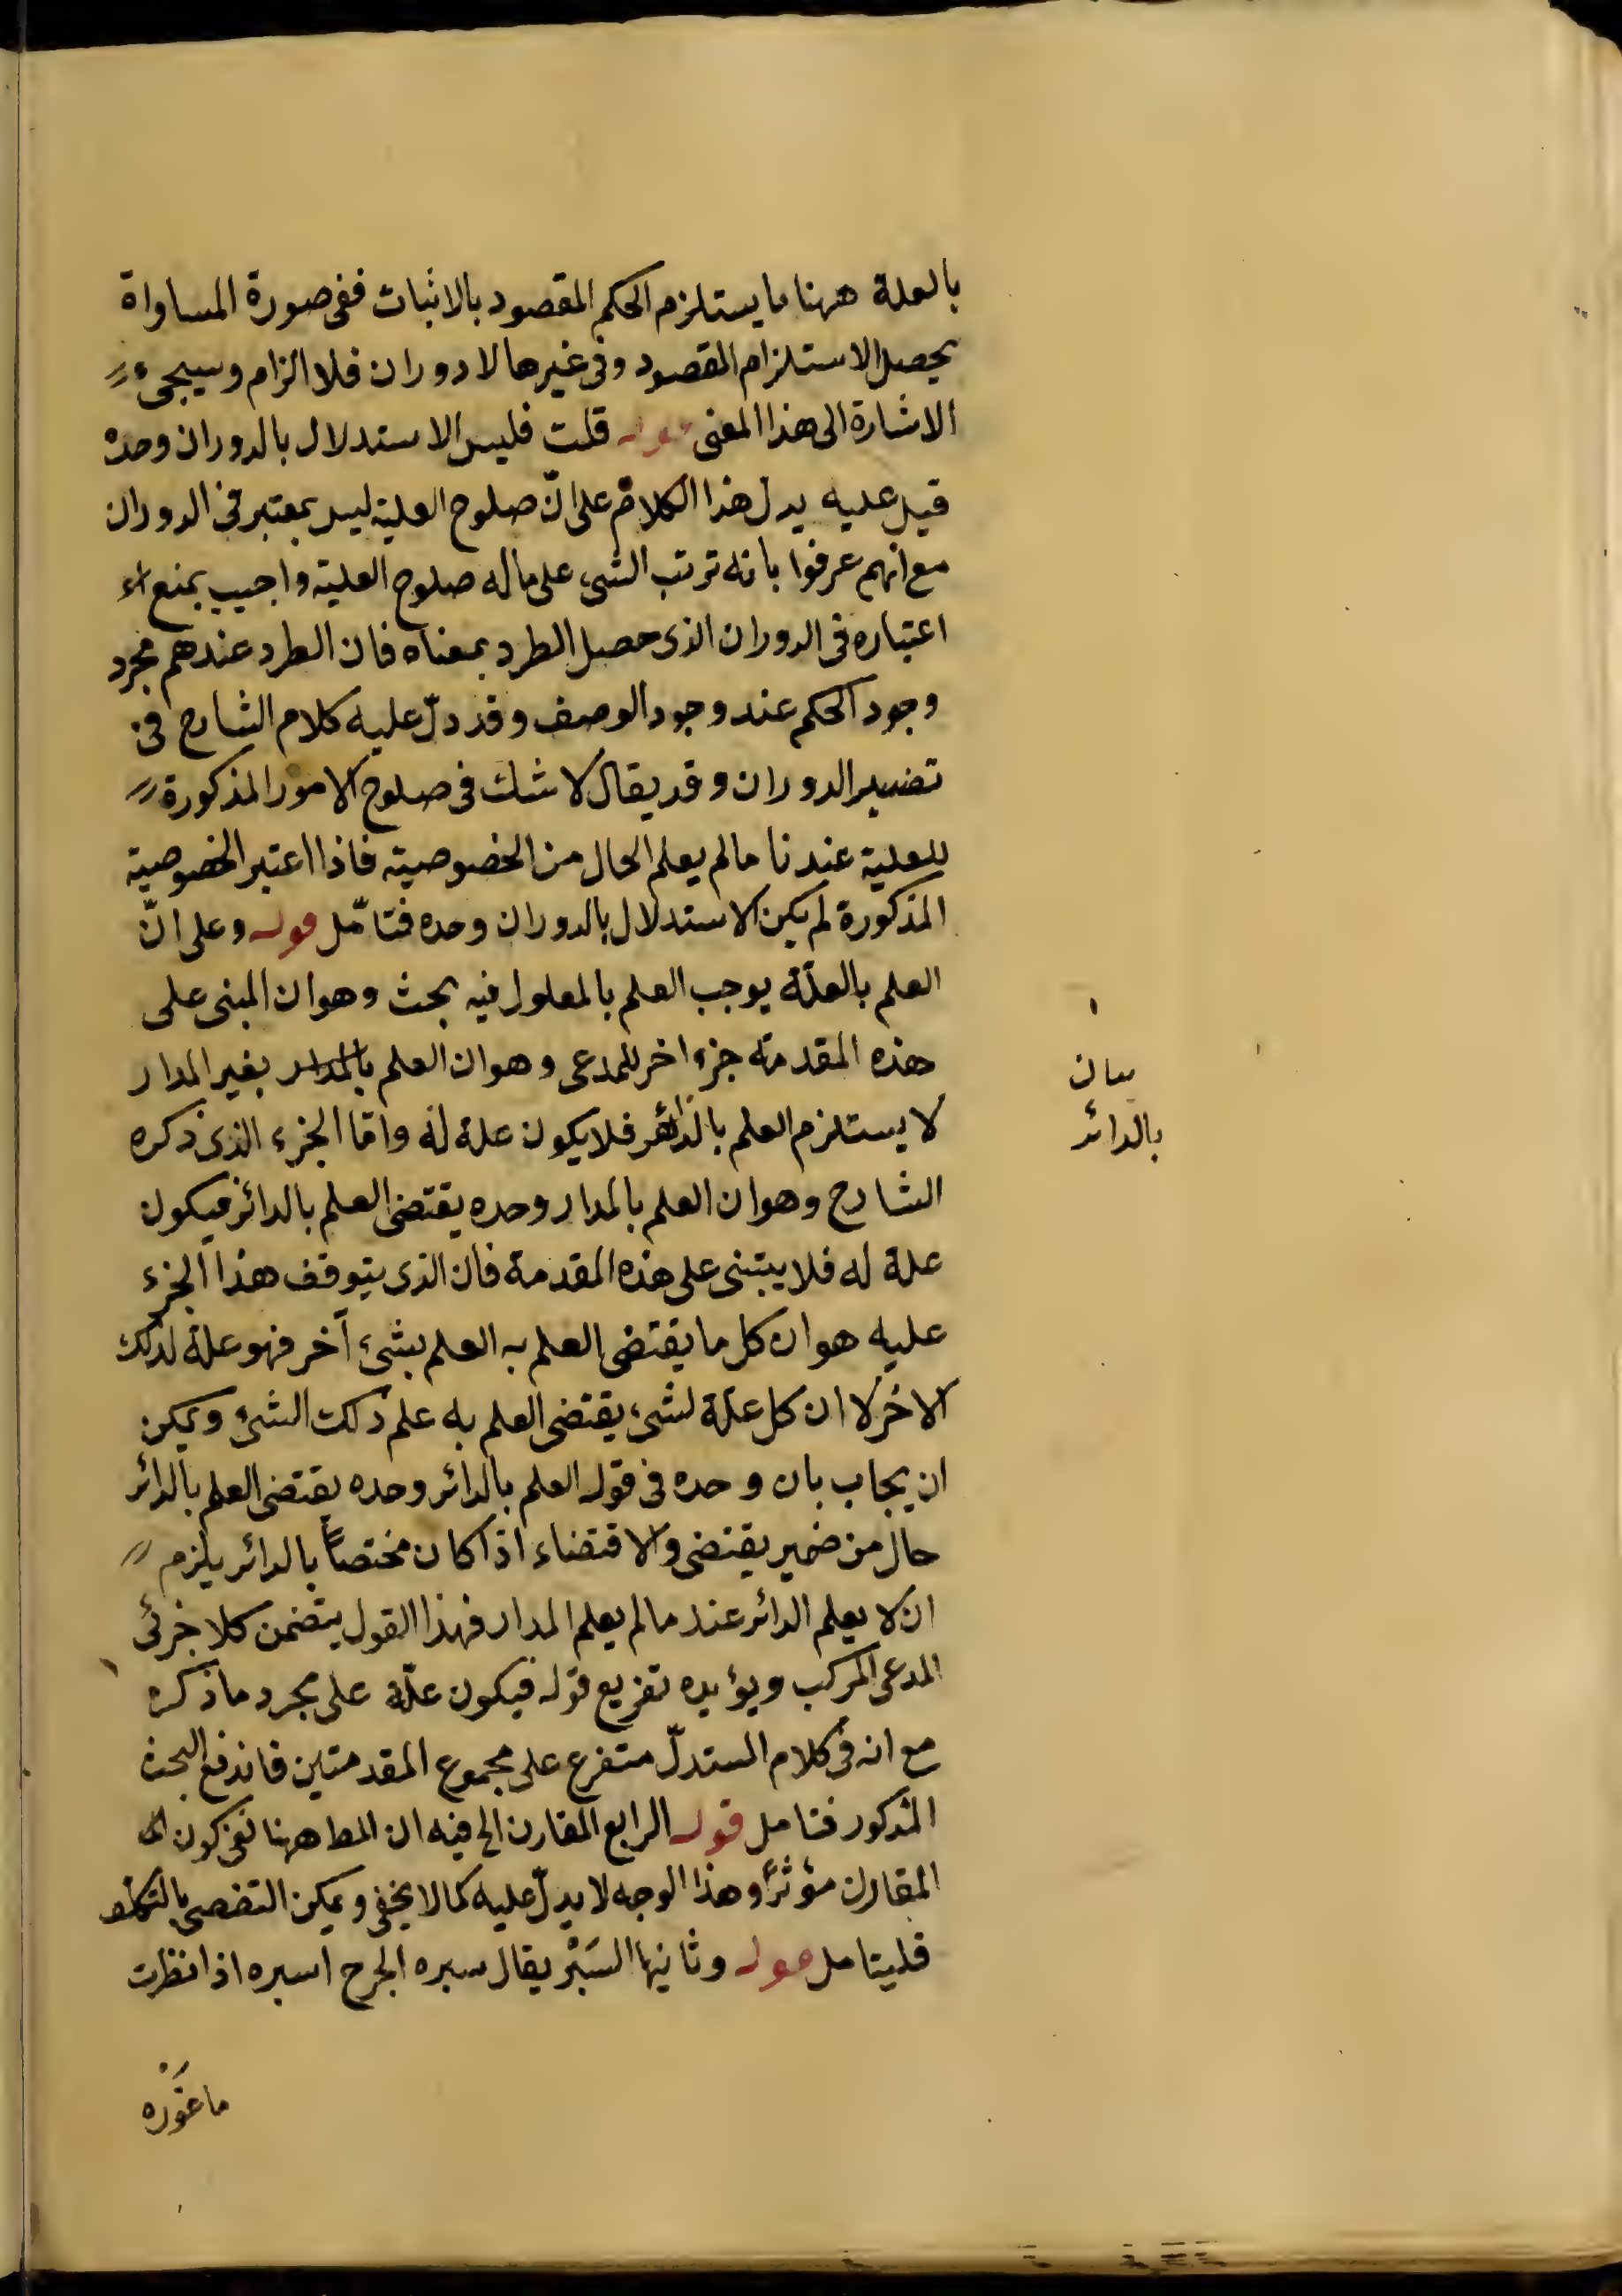 بالعلة ههنا ما يستلزم الحكم المقصود بالاثبات ففى صورة المساواة
يحصل الاستلزام المقصود وفى غيرها لا دوران فلا الزام وسيجىء
الاشارة الى هذا المعنى قوله قلت فليس الاستدلال بالدوران وحده
قيل عليه يدل هذا الكلام على انّ صلوح العلية ليس بمعتبر فى الدوران
مع انهم عرفوا بانه ترتب الشىء على ماله صلوح العلية واجيب بمنع
اعتباره فى الدوران الذى حصل الطرد بمعناه فان الطرد عندهم مجرد
وجود الحكم عند وجود الوصف وقد دلّ عليه كلام الشارح فى
تفسير الدوران وقد يقال لا شك فى صلوح الامور المذكورة
للعلية عندنا مالم يعلم الحال من الخصوصية فاذا اعتبر الخصوصية
المذكورة لم يكن الاستدلال بالدوران وحده فتامّل قوله وعلى انّ
العلم بالعلّة يوجب العلم بالمعلول فيه بحث وهو ان المبنى على
هذه المقدمة جزء اخر للمدعى وهو ان العلم بالمدار بغير المدار
لا يستلزم العلم بالدائر فلا يكون علة له وامّا الجزء الذى ذكره
الشارح وهو ان العلم بالمدار وحده يقتضى العلم بالدائر فيكون
علة له فلا يبتنى على هذه المقدمة فان الذى يتوقف هذا الجزء
عليه هو ان كل ما يقتضى العلم به العلم بشىء آخر فهو علة لذلك
الاخر لا ان كل علّة لشىء يقتضى العلم به علم ذلك الشىء ويمكن
ان يجاب بان وحده فى قوله العلم بالدائر وحده يقتضى العلم بالدائر
حال من ضمير يقتضى والاقتضاء اذا كان مختصاً بالدائر يلزم
ان لا يعلم الدائر عند مالم يعلم المدار فهذا القول يتضمن كلا جزئى
المدعى المركب ويؤيده تفريع قوله فيكون علّة على مجرد ما ذكره
مع انه فى كلام المستدلّ متفرع على مجموع المقدمتين فاندفع البحث
المذكور فتامل قوله الرابع المقارن الخ فيه ان المط ههنا نفى كون
المقارن مؤثرًا وهذا الوجه لا يدلّ عليه كما لا يخفى ويمكن التفصى بالتكلف
فليتامل قوله وثانيها السَبْر يقال سبره الجرح اسبره اذا نظرت
ما غَوْره
بيان
بالدائر